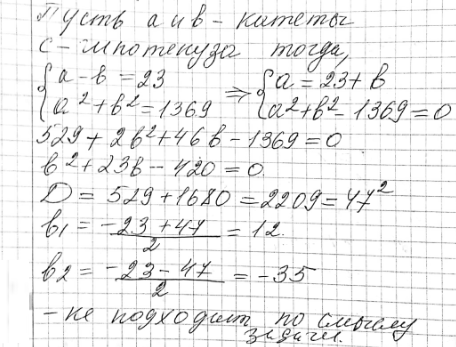 Пусть a и b - катеты
c - гипотенуза тогда,
{a - b = 23 => {a = 23 + b
{a² + b² = 1369 {a² + b² - 1369 = 0
529 + 2b² + 46b - 1369 = 0
b² + 23b - 420 = 0
D = 529 + 1680 = 2209 = 47²
b₁ = (-23 + 47)/2 = 12.
b₂ = (-23 - 47)/2 = -35
- не подходит по смыслу
задачи.